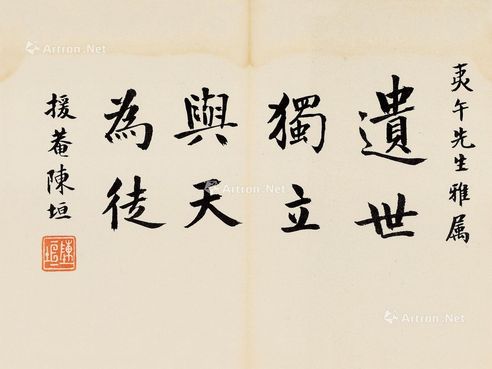 夷午先生雅属
遺世
獨立
與天
為徒
援菴陳垣
陳垣
Artron.Net
Artron.Net
Artron.Net
Artron.Net